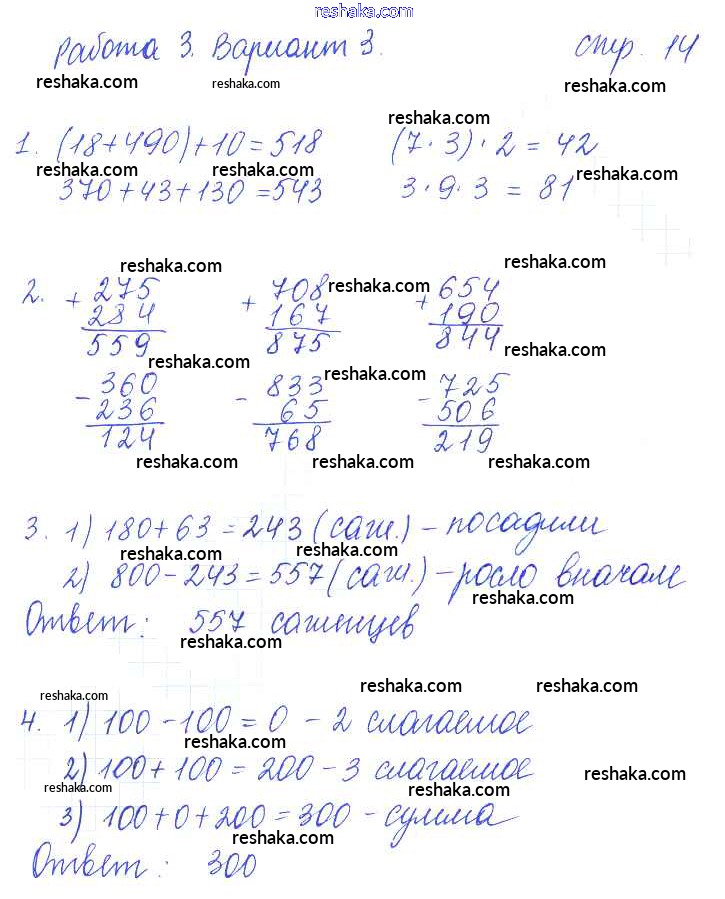 reshaka.com
работа 3. Вариант 3. стр. 14
reshaka.com reshaka.com reshaka.com
reshaka.com
1. (18+490)+10=518 (7·3)·2=42
reshaka.com reshaka.com reshaka.com
370+43+130=543 3·9·3=81
reshaka.com reshaka.com
2. + 275 + 708 + 654
reshaka.com
284 167 190
559 875 844
reshaka.com reshaka.com
reshaka.com
- 360 - 833 - 725
236 65 506
124 768 219
reshaka.com reshaka.com reshaka.com
3. 1) 180+63=243 (саж.) – посадили
reshaka.com reshaka.com
2) 800-243=557 (саж.) – росло вначале
reshaka.com
Ответ: 557 саженцев
reshaka.com
reshaka.com reshaka.com reshaka.com
4. 1) 100-100=0 – 2 слагаемое
reshaka.com
2) 100+100=200 – 3 слагаемое
reshaka.com reshaka.com reshaka.com
3) 100+0+200=300 – сумма
reshaka.com
Ответ: 300